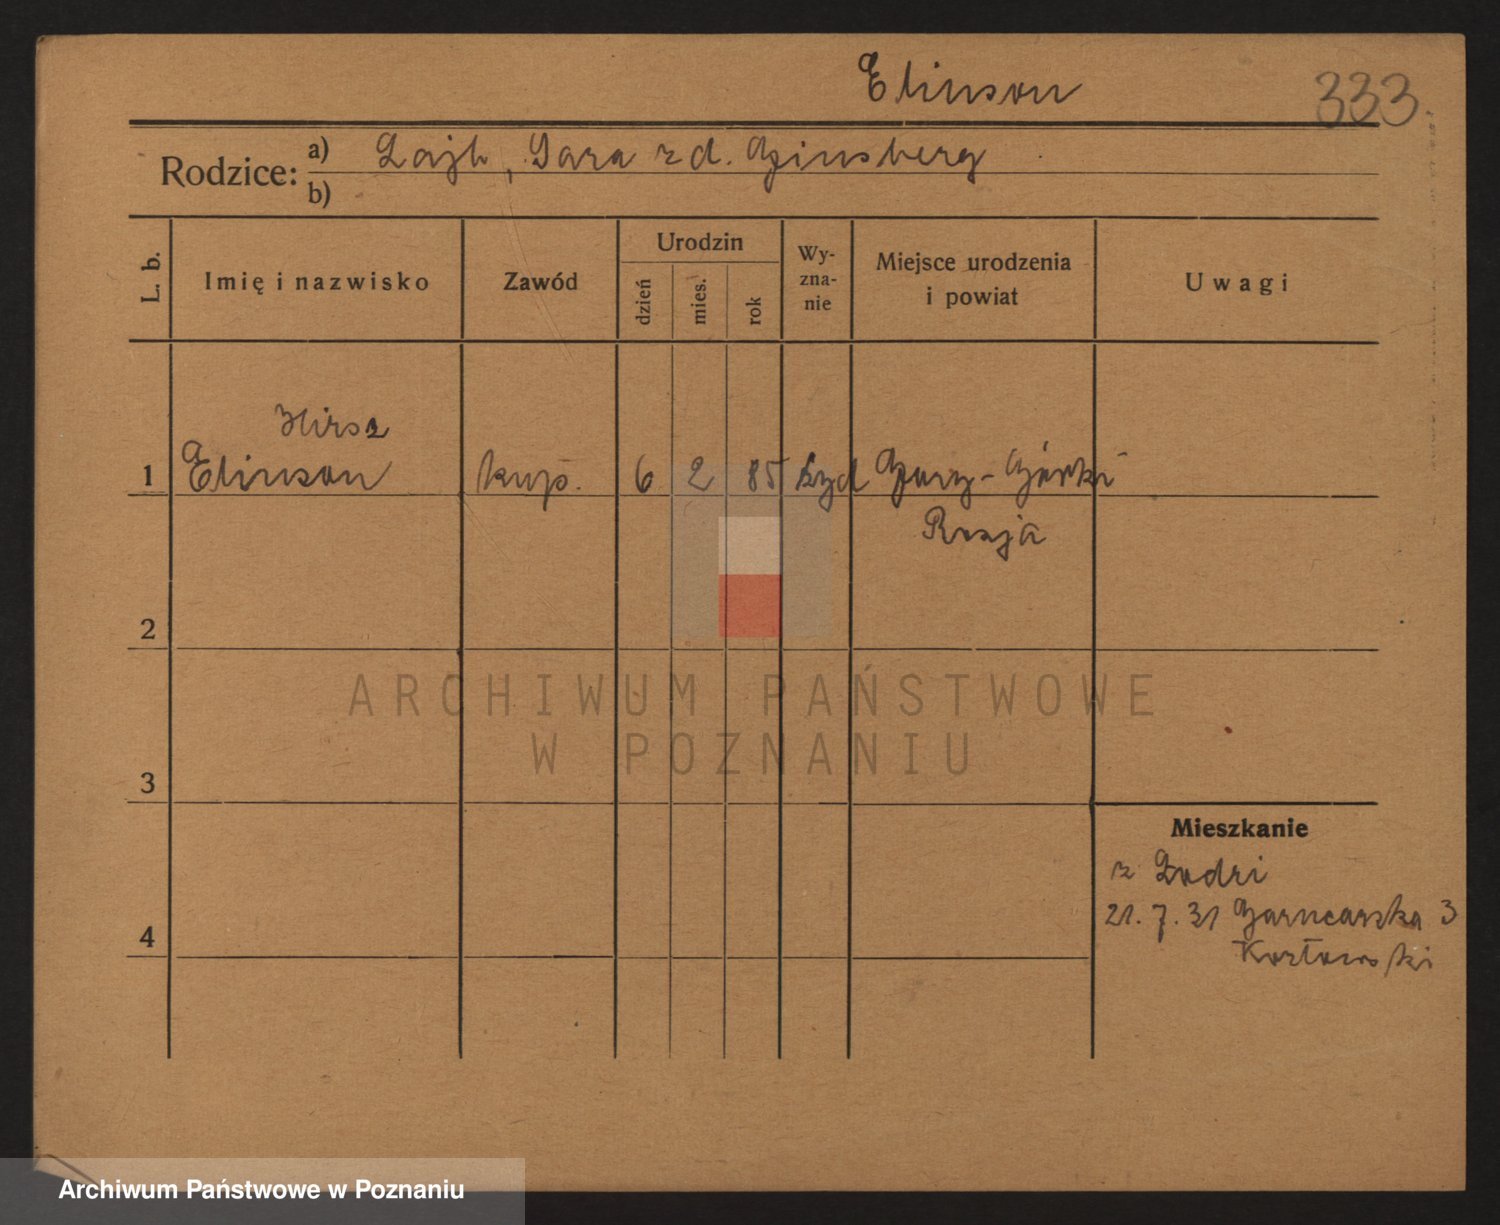 Elinson
333
Rodzice: a) Lajb, Sara z d. Ginsberg
b)
L. b.
Imię i nazwisko
Zawód
Urodzin
dzień
mies.
rok
Wy-
zna-
nie
Miejsce urodzenia
i powiat
Uwagi
Hirsz
1 Elinson kup. 6 2 85 żyd Gory-Górki
Rosja
2
ARCHIWUM PAŃSTWOWE
W POZNANIU
3
Mieszkanie
z Łodzi
21. 7. 31 Garncarska 3
Kozłowski
4
Archiwum Państwowe w Poznaniu